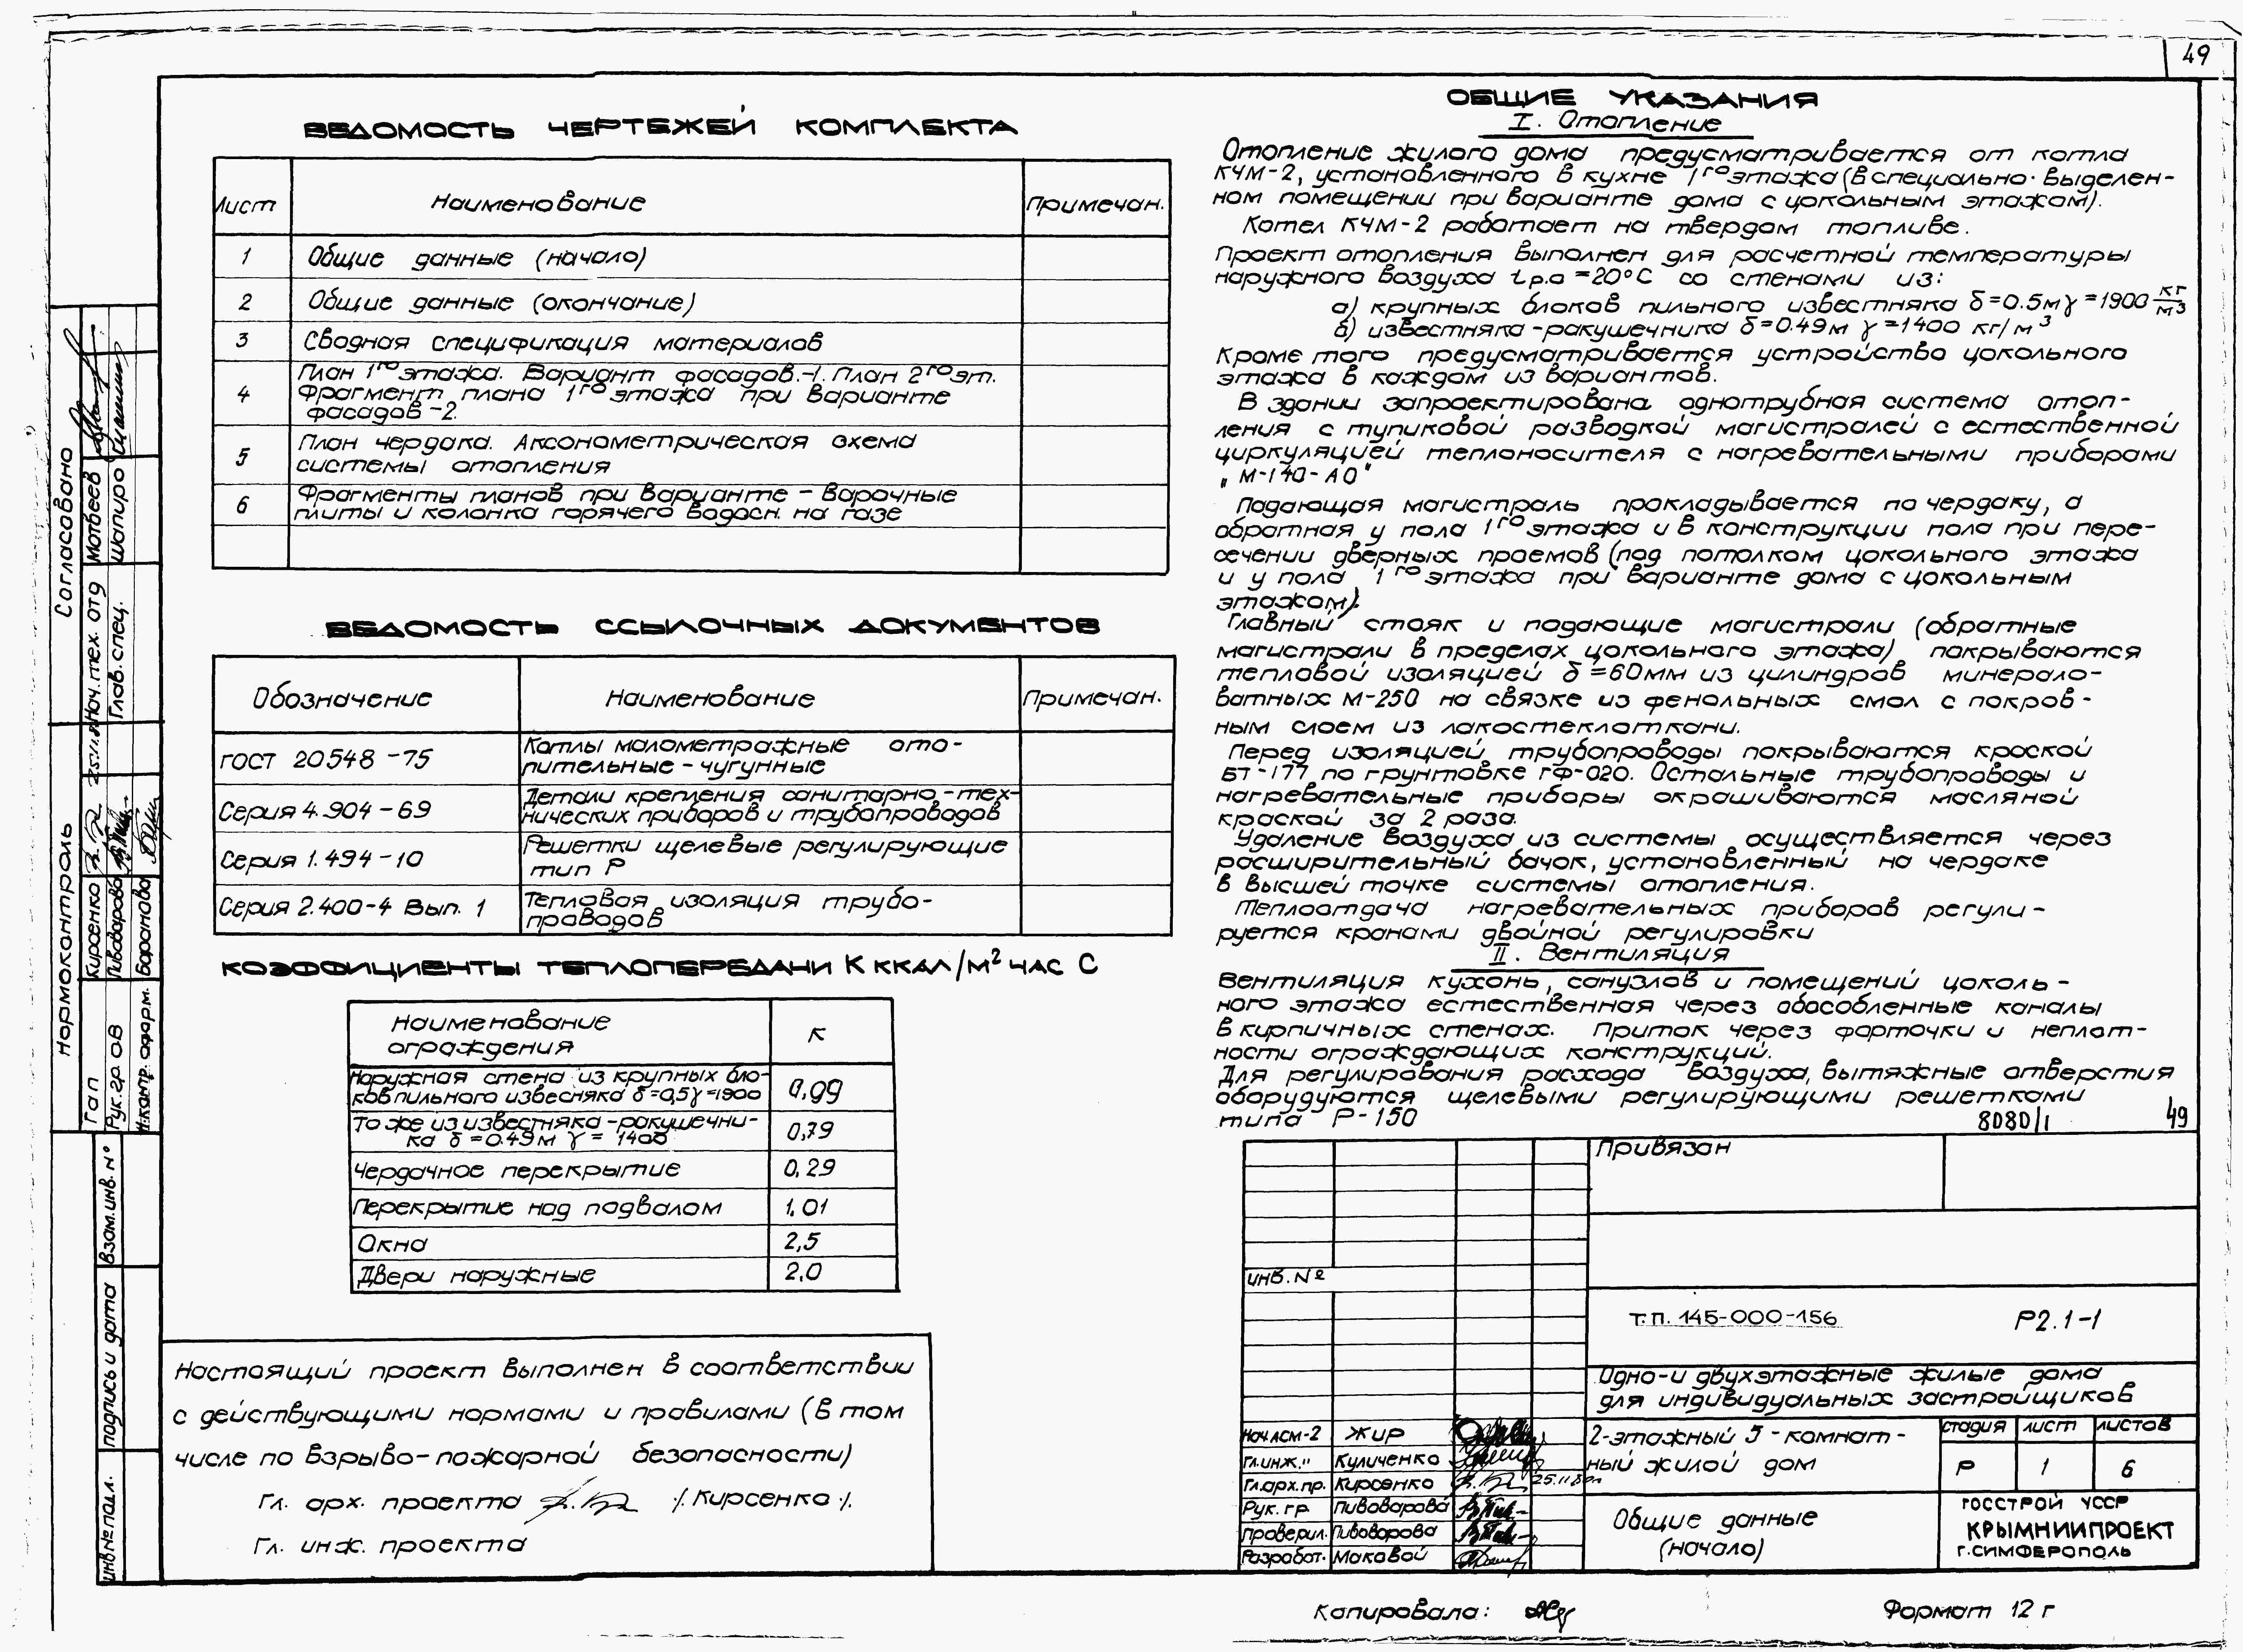 49
ВЕДОМОСТЬ ЧЕРТЕЖЕЙ КОМПЛЕКТА
Лист Наименование Примечан.
1 Общие данные (начало)
2 Общие данные (окончание)
3 Сводная спецификация материалов
План 1го этажа. Вариант фасадов-1. План 2го эт.
4 Фрагмент плана 1го этажа при варианте
фасадов-2.
5 План чердака. Аксонометрическая схема
системы отопления
6 Фрагменты планов при варианте - варочные
плиты и колонка горячего водосн. на газе
ВЕДОМОСТЬ ССЫЛОЧНЫХ ДОКУМЕНТОВ
Обозначение Наименование Примечан.
ГОСТ 20548-75 Котлы малометражные ото-
пительные - чугунные
Серия 4.904-69 Детали крепления санитарно-тех-
нических приборов и трубопроводов
Серия 1.494-10 Решетки щелевые регулирующие
тип Р
Серия 2.400-4 Вып. 1 Тепловая изоляция трубо-
проводов
КОЭФФИЦИЕНТЫ ТЕПЛОПЕРЕДАЧИ К ККАЛ/М² ЧАС С
Наименование
ограждения К
Наружная стена из крупных бло-
ков пильного извесняка δ=0,5 γ=1900 0,99
То же из известняка-ракушечни-
ка δ=0.49м γ=1400 0,79
Чердачное перекрытие 0,29
Перекрытие над подвалом 1,01
Окна 2,5
Двери наружные 2,0
Настоящий проект выполнен в соответствии
с действующими нормами и правилами (в том
числе по взрыво-пожарной безопасности)
Гл. арх. проекта /. Кирсенко /.
Гл. инж. проекта
ОБЩИЕ УКАЗАНИЯ
I. Отопление
Отопление жилого дома предусматривается от котла
КЧМ-2, установленного в кухне 1го этажа (в специально выделен-
ном помещении при варианте дома с цокольным этажом).
Котел КЧМ-2 работает на твердом топливе.
Проект отопления выполнен для расчетной температуры
наружного воздуха t р.о =20°С со стенами из:
а) крупных блоков пильного известняка δ=0.5м γ=1900 кг/м3
б) известняка-ракушечника δ=0.49м γ=1400 кг/м³
Кроме того предусматривается устройство цокольного
этажа в каждом из вариантов.
В здании запроектирована однотрубная система отоп-
ления с тупиковой разводкой магистралей с естественной
циркуляцией теплоносителя с нагревательными приборами
„М-140-АО"
Подающая магистраль прокладывается по чердаку, а
обратная у пола 1го этажа и в конструкции пола при пере-
сечении дверных проемов (под потолком цокольного этажа
и у пола 1го этажа при варианте дома с цокольным
этажом).
Главный стояк и подающие магистрали (обратные
магистрали в пределах цокольного этажа) покрываются
тепловой изоляцией δ=60мм из цилиндров минерало-
ватных М-250 на связке из фенольных смол с покров-
ным слоем из лакостеклоткани.
Перед изоляцией трубопроводы покрываются краской
БТ-177 по грунтовке ГФ-020. Остальные трубопроводы и
нагревательные приборы окрашиваются масляной
краской за 2 раза.
Удаление воздуха из системы осуществляется через
расширительный бачок, установленный на чердаке
в высшей точке системы отопления.
Теплоотдача нагревательных приборов регули-
руется кранами двойной регулировки
II. Вентиляция
Вентиляция кухонь, санузлов и помещений цоколь-
ного этажа естественная через обособленные каналы
в кирпичных стенах. Приток через форточки и неплот-
ности ограждающих конструкций.
Для регулирования расхода воздуха, вытяжные отверстия
оборудуются щелевыми регулирующими решетками
типа Р-150
8080/1 49
Привязан
инв. №
Т.П. 145-000-156 Р2.1-1
Одно- и двухэтажные жилые дома
для индивидуальных застройщиков
Нач.АСМ-2 Жир
Гл.инж." Куличенко
Гл.арх.пр. Кирсенко 25.11.80г
Рук. гр Пивоварова
Проверил. Пивоварова
Разработ. Маковой
2-этажный 5-комнат-
ный жилой дом
стадия лист листов
Р 1 6
Общие данные
(начало)
ГОССТРОЙ УССР
КРЫМНИИПРОЕКТ
Г. СИМФЕРОПОЛЬ
Копировала:
Формат 12г
Согласовано
Нач.тех. отд Матвеев
Глав.спец. Шапиро
Нормоконтроль
Гап Кирсенко
Рук.гр. ОВ Пивоварова
Н.контр. оформ. Баранова
Взам.инв.№
Подпись и дата
Инв № подл.